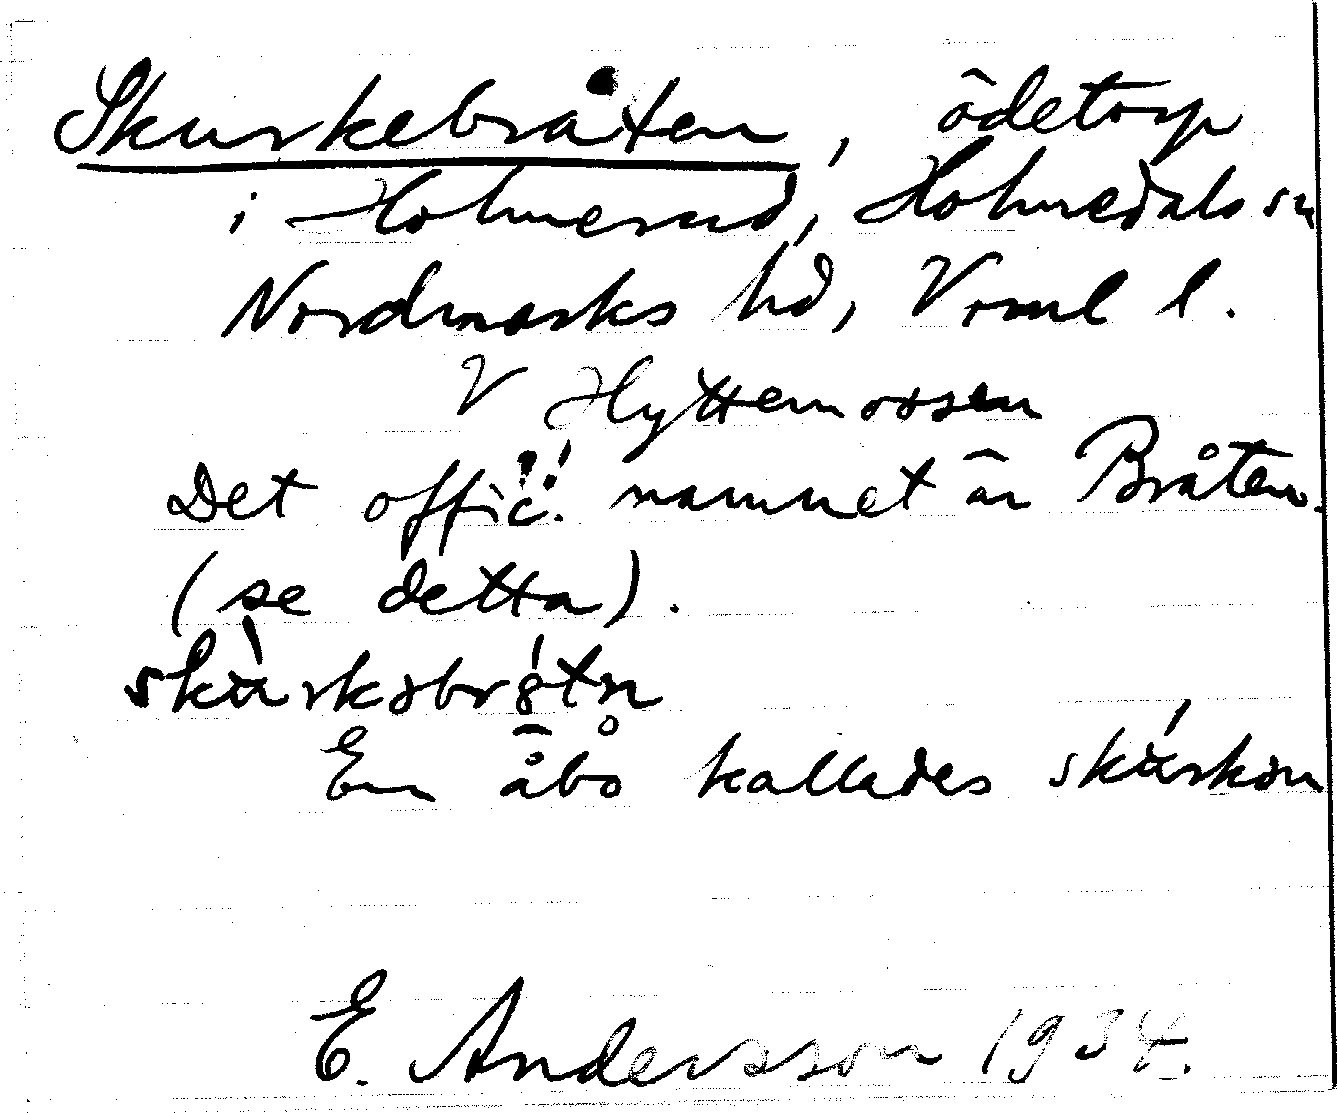 Skurkebråten, ödetorp
i Holmerud, Holmedals sn
Nordmarks hd, Vrml l.
V Hyttemossen
Det offic. namnet är Bråten.
(se detta).
En åbo kallades
E. Andersson 1934.